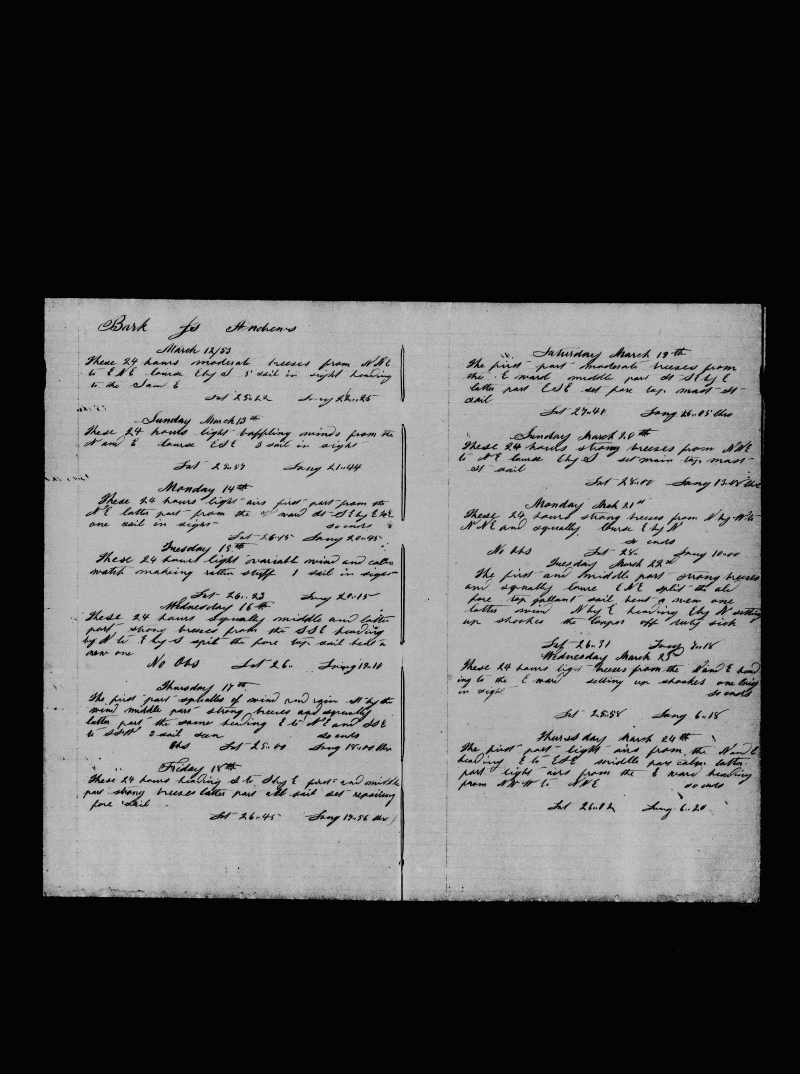 Bark Js Andrews
March 12/53
These 24 hours moderate breeses from NNE
to ENE course E by S 5 sail in sight heading
to the S and E
Lat 25..22 Long 22..25
Sunday March 13th
These 24 hours light baffling winds from the
N and E course ESE 3 sail in sight
Lat 25..57 Long 21..44
Monday 14th
These 24 hours light airs first part from the
NE latter part from the ward
one sail in sight so ends
Lat 26..15 Long 20..45
Tuesday 15th
These 24 hours light variable wind and calm
watch makeing ratten stuff 1 sail in sight
Lat 26..23 Long 20..15
Wednesday 16th
These 24 hours squally middle and latter
part strong breeses from the SSE heading
by N to E by S split the fore top sail bent a
new one
No Obs Lat 26.. Long 19.10
Thursday 17th
The first part of wind and rain by the
wind middle part strong breeses and squally
latter part the same heading E to NE and SSE
to SSW 2 sail seen so ends
Obs Lat 25..00 Long 18..00
Friday 18th
These 24 hours heading S to S by E first and middle
part strong breeses latter part all sail set repairing
fore sail
Lat 26..45 Long 17..56
Saturday March 19th
The first part moderate breeses from
the E ward middle part S by E
latter part ESE set fore top mast st
sail
Lat 27..48 Long 16..05
Sunday March 20th
These 24 hours strong breeses from NNE
to NE course E by S set main top mast
st sail
Lat 28..00 Long 13..08
Monday Mach 21st
These 24 hours strong breeses from N by W to
NNE and squally course E by N
so ends
No Obs Lat 28.. Long 10..00
Tuesday March 22nd
The first and middle part strong breeses
and squally course ENE split the old
fore top gallant sail bent a new one
latter wind N by E heading E by N setting
up shooks the Cooper off duty sick
Lat 26..31 Long 18
Wednesday March 23rd
These 24 hours light breeses from the N and E head
ing to the E ward setting up shooks one brig
in sight so ends
Lat 25..58 Long 6..18
Thuresday March 24th
The first part light airs from the N and E
heading E to ESE middle part calm latter
part light airs from the E ward heading
from NW to NNE so ends
Lat 26..02 Long 6..20